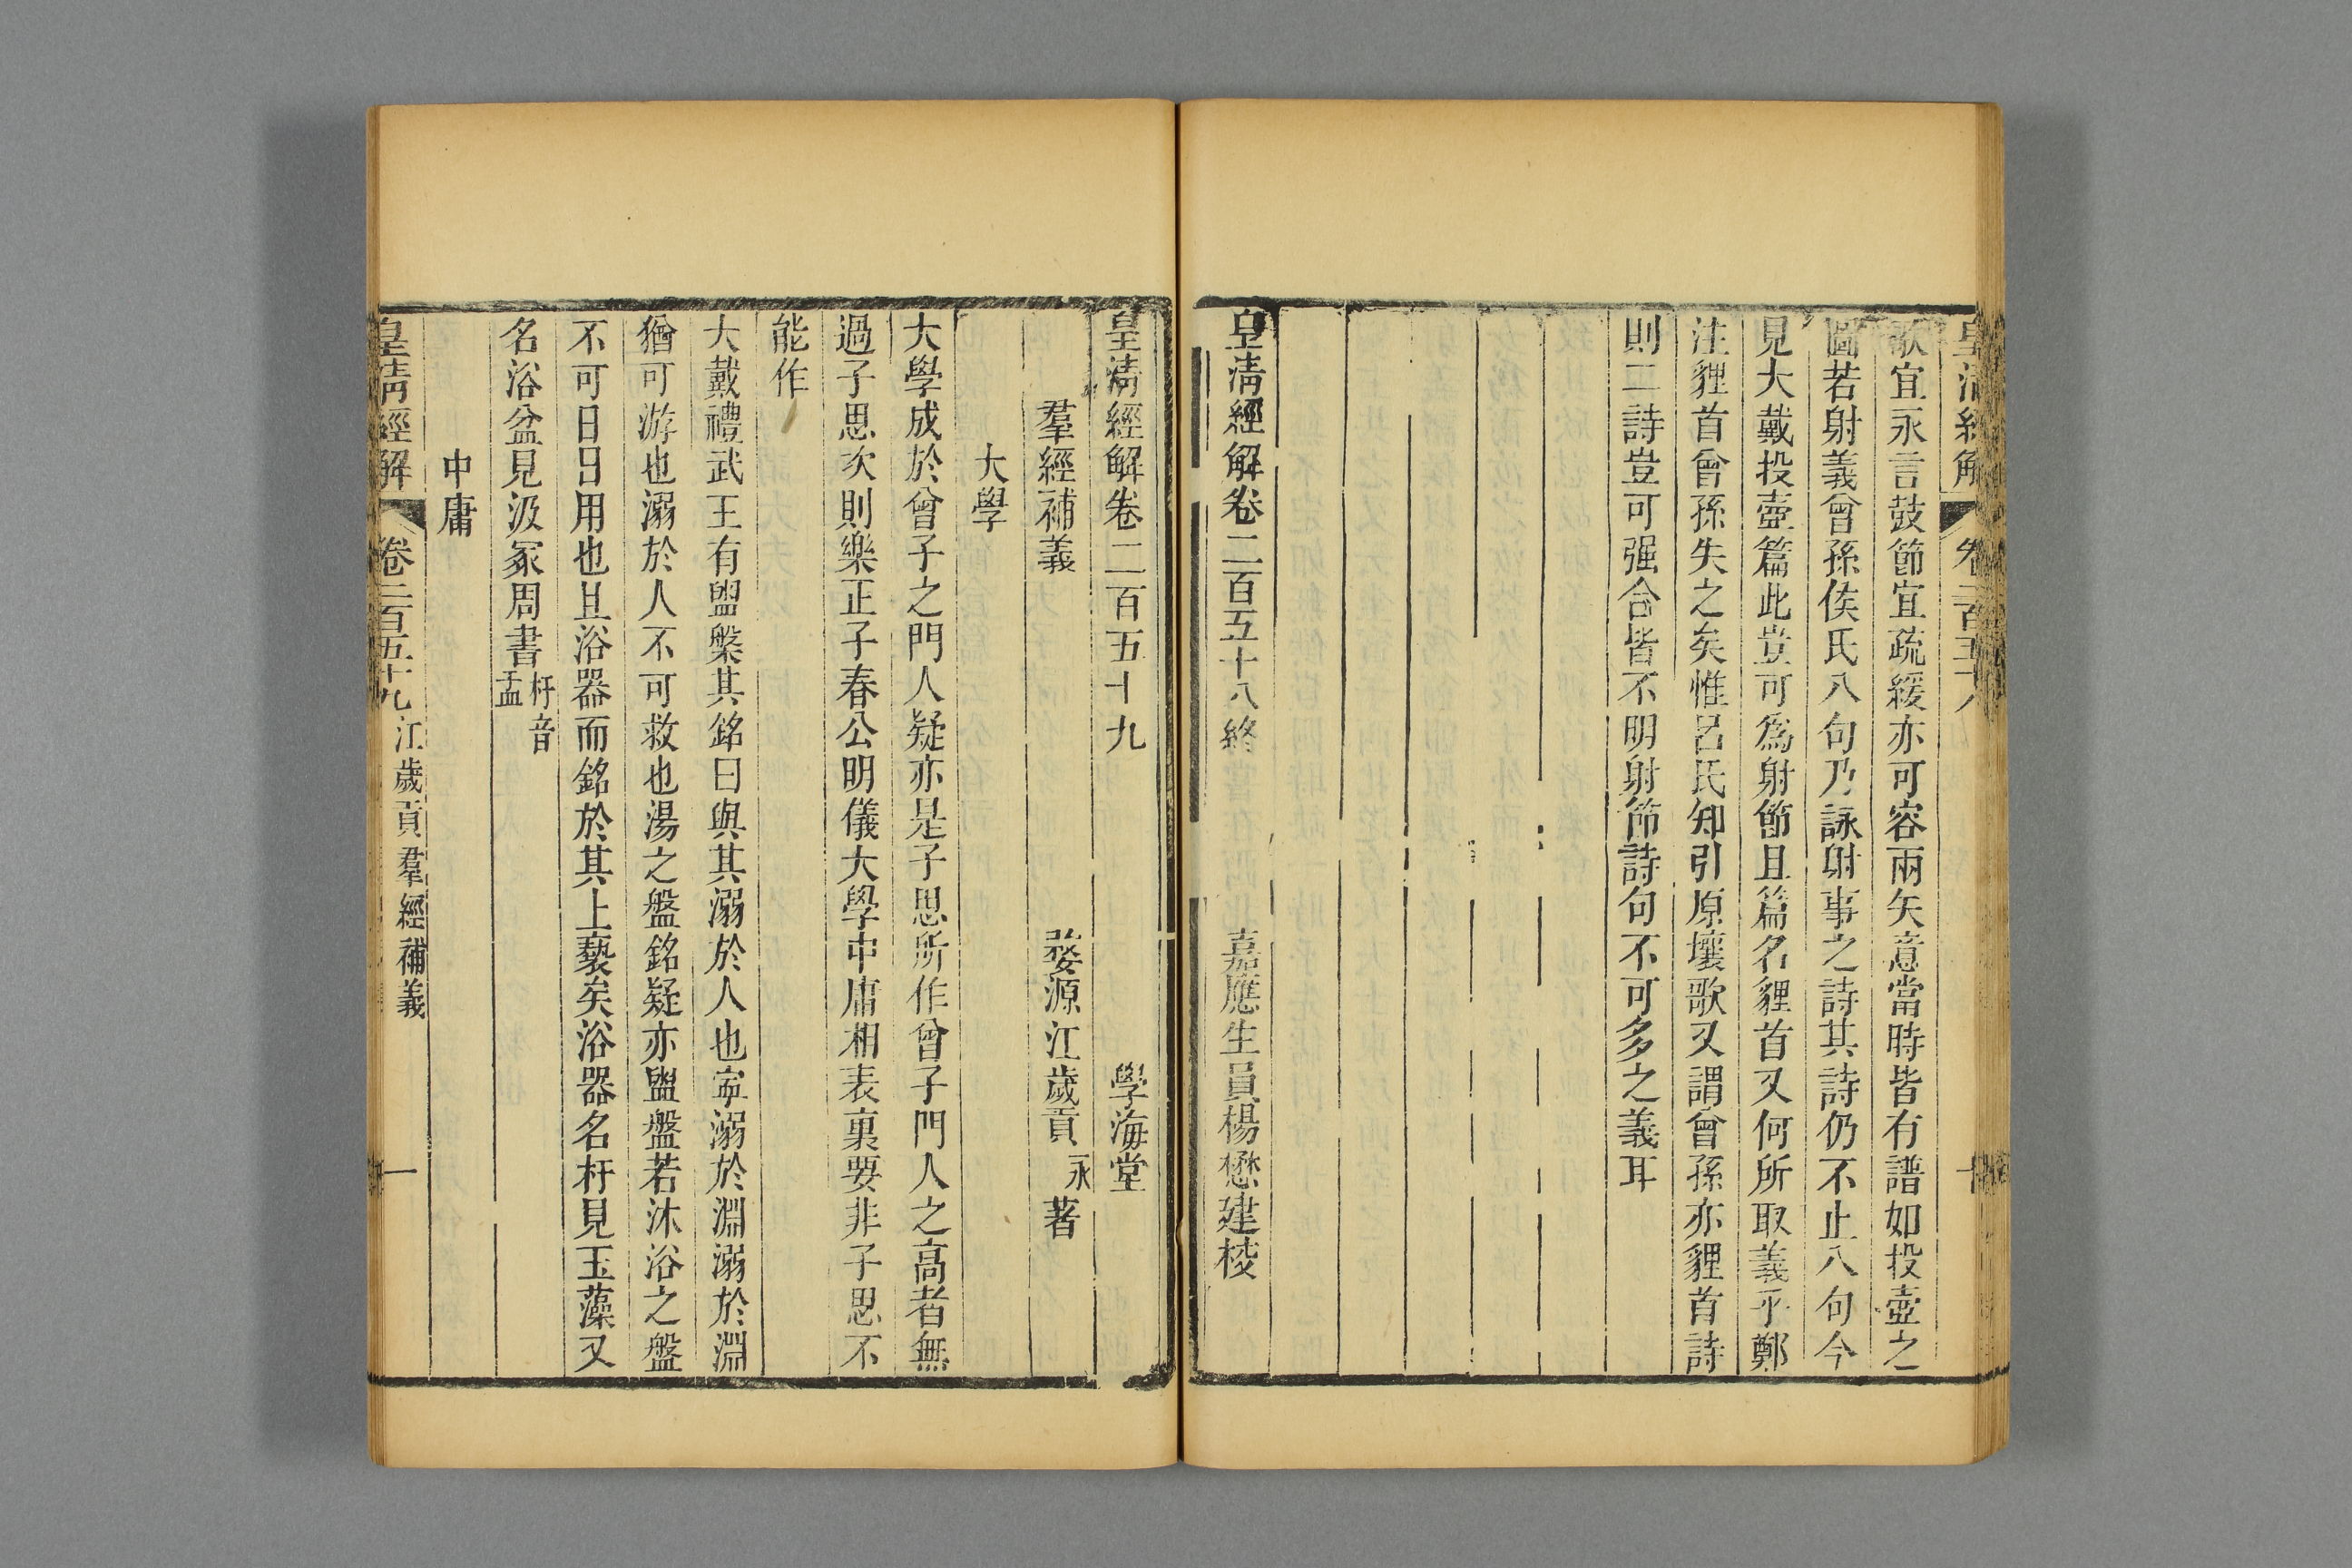 皇清經解 卷二百五十八 十
歌宜永言鼓節宜疏緩亦可容兩矢意當時皆有譜如投壺之
圖若射義曾孫侯氏八句乃詠射事之詩其詩仍不止八句今
見大戴投壺篇此豈可爲射節且篇名貍首又何所取義乎鄭
注貍首曾孫失之矣惟呂氏知引原壤歌又謂曾孫亦貍首詩
則二詩豈可强合皆不明射節詩句不可多之義耳
皇淸經解卷二百五十八終 嘉應生員楊懋建校
皇淸經解卷二百五十九 學海堂
羣經補義 婺源江歲貢永著
大學
大學成於曾子之門人疑亦是子思所作曾子門人之高者無
過子思次則樂正子春公明儀大學中庸相表裏要非子思不
能作
大戴禮武王有盥槃其銘曰與其溺於人也寧溺於淵溺於淵
猶可游也溺於人不可救也湯之盤銘疑亦盥盤若沐浴之盤
不可日日用也且浴器而銘於其上褻矣浴器名杅見玉藻又
名浴盆見汲冢周書杅音盂
中庸
皇淸經解 卷二百五十九 江歲貢羣經補義 一